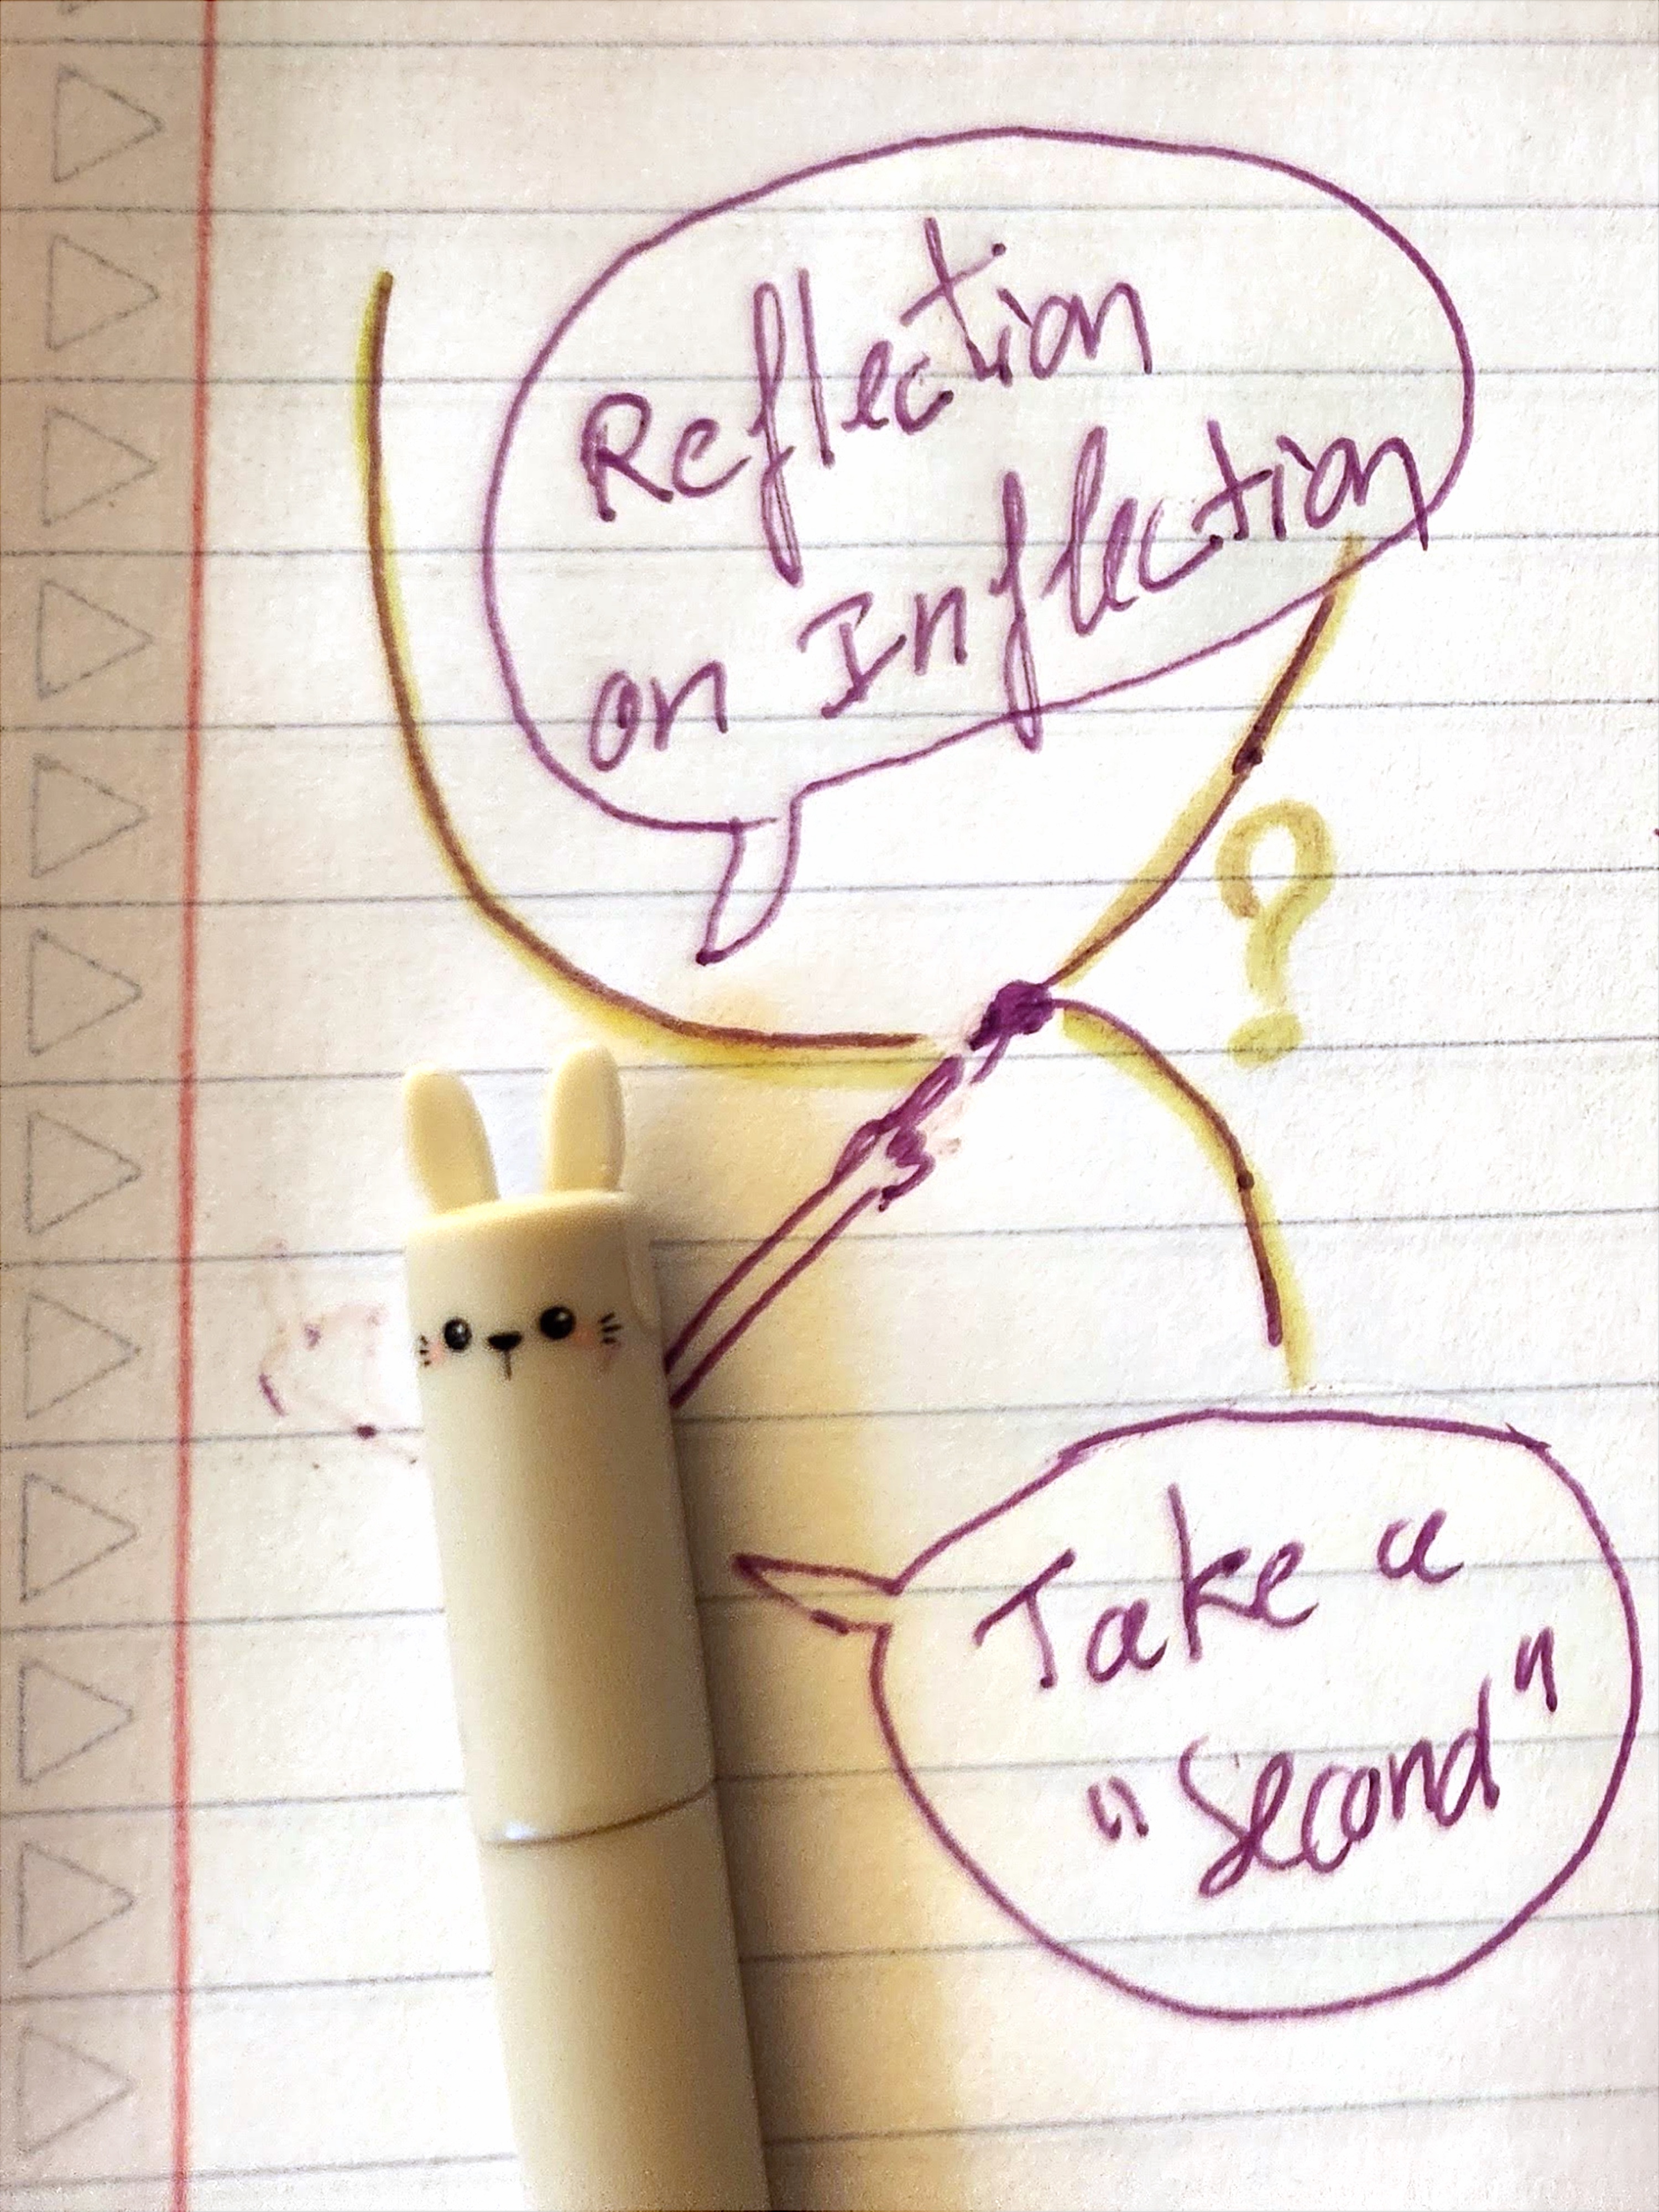 Reflection
on Inflection
?
Take a
"Second"